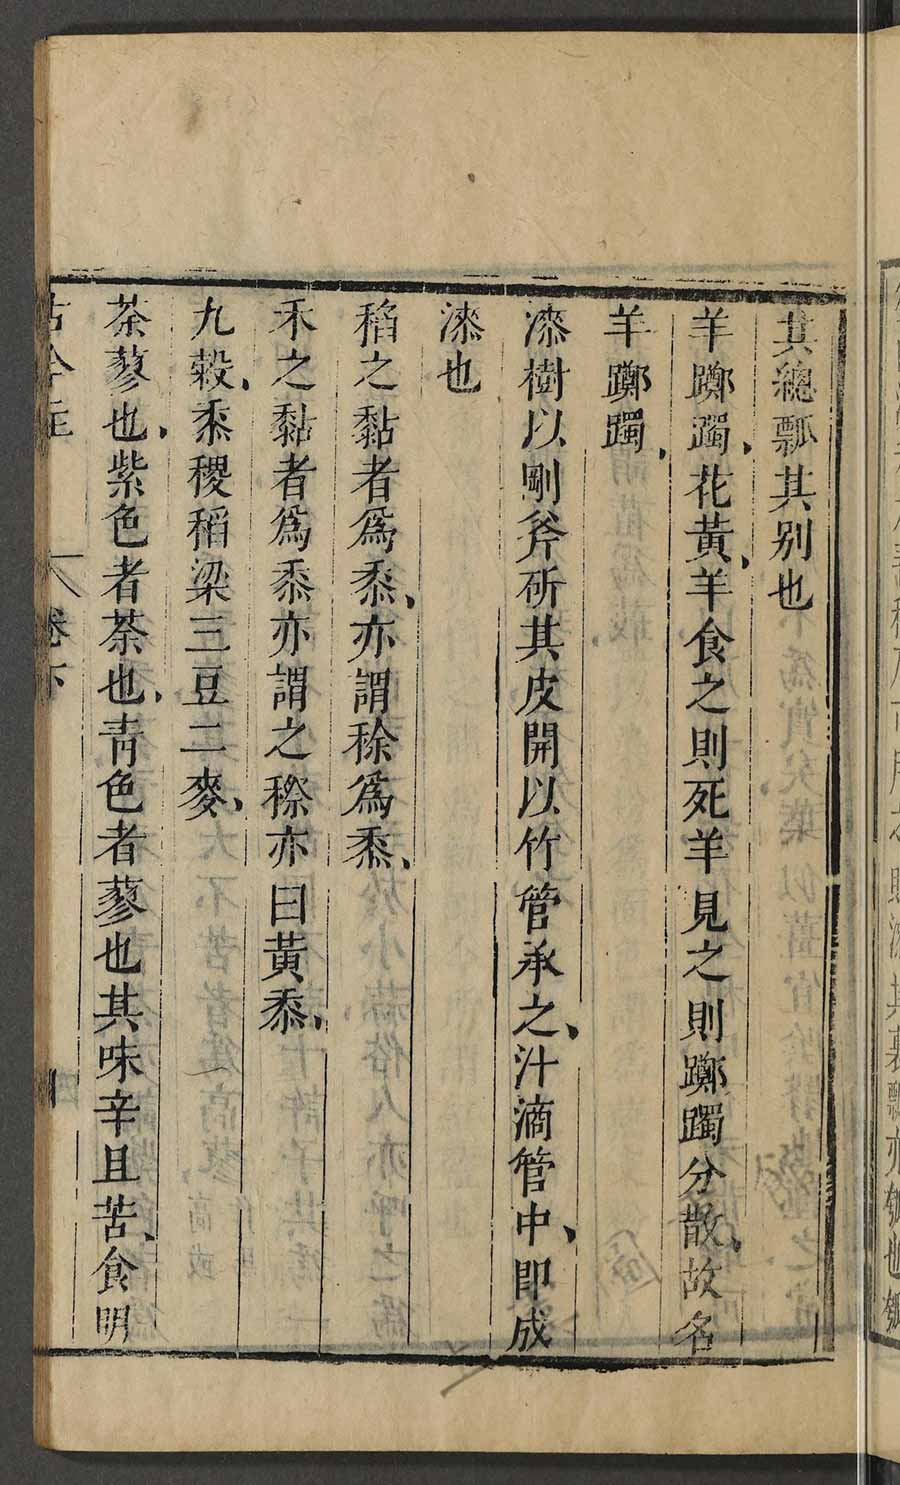 其總瓢其别也
羊躑躅、花黃、羊食之則死羊見之則躑躅分散、故名
羊躑躅、
漆樹以剛斧斫其皮開以竹管承之、汁滴管中、即成
漆也
稻之黏者爲黍、亦謂稌爲黍、
禾之黏者爲黍亦謂之穄亦曰黃黍、
九穀、黍稷稻梁三豆二麥、
荼蓼也、紫色者荼也、青色者蓼也其味辛且苦、食明
古今注 卷下